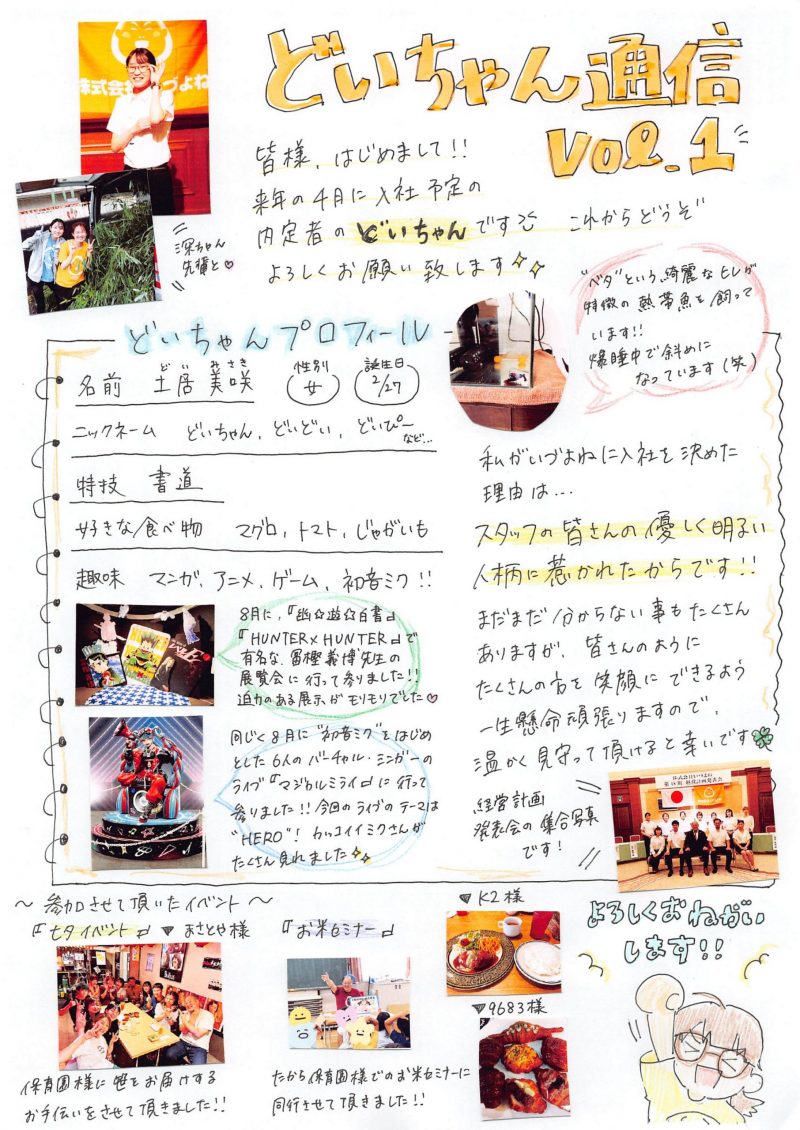 どいちゃん通信
vol.1
株式会社いづよね
皆様、はじめまして!!
来年の4月に入社予定の
内定者のどいちゃんです これからどうぞ
よろしくお願い致します
深ちゃん
先輩と♡
"ベタ"という綺麗なヒレが
特徴の熱帯魚を飼って
います!!
爆睡中で斜めに
なっています(笑)
どいちゃんプロフィール
名前 土居 美咲
どい みさき
性別
女
誕生日
2/27
ニックネーム どいちゃん、どいどい、どいぴー
など…
特技 書道
好きな食べ物 マグロ、トマト、じゃがいも
趣味 マンガ、アニメ、ゲーム、初音ミク!!
8月に、『幽☆遊☆白書』
『HUNTER×HUNTER』で
有名な、冨樫義博先生の
展覧会に行って参りました!!
迫力のある展示がモリモリでした♡
同じく8月に"初音ミク"をはじめ
とした6人のバーチャル・シンガーの
ライブ『マジカルミライ』に行って
参りました!!今回のライブのテーマは
"HERO"!カッコイイミクさんが
たくさん見れました
私がいづよねに入社を決めた
理由は…
スタッフの皆さんの優しく明るい
人柄に惹かれたからです!!
まだまだ分からない事もたくさん
ありますが、皆さんのように
たくさんの方を笑顔にできるよう
一生懸命頑張りますので、
温かく見守って頂けると幸いです
経営計画
発表会の集合写真
です!
株式会社いづよね
経営計画発表会
〜参加させて頂いたイベント〜
『七夕イベント』▼あさとや様
保育園様に笹をお届けする
お手伝いをさせて頂きました!!
『お米セミナー』
たから保育園様でのお米セミナーに
同行させて頂きました!!
▼K2様
▼9683様
よろしくおねがい
します!!